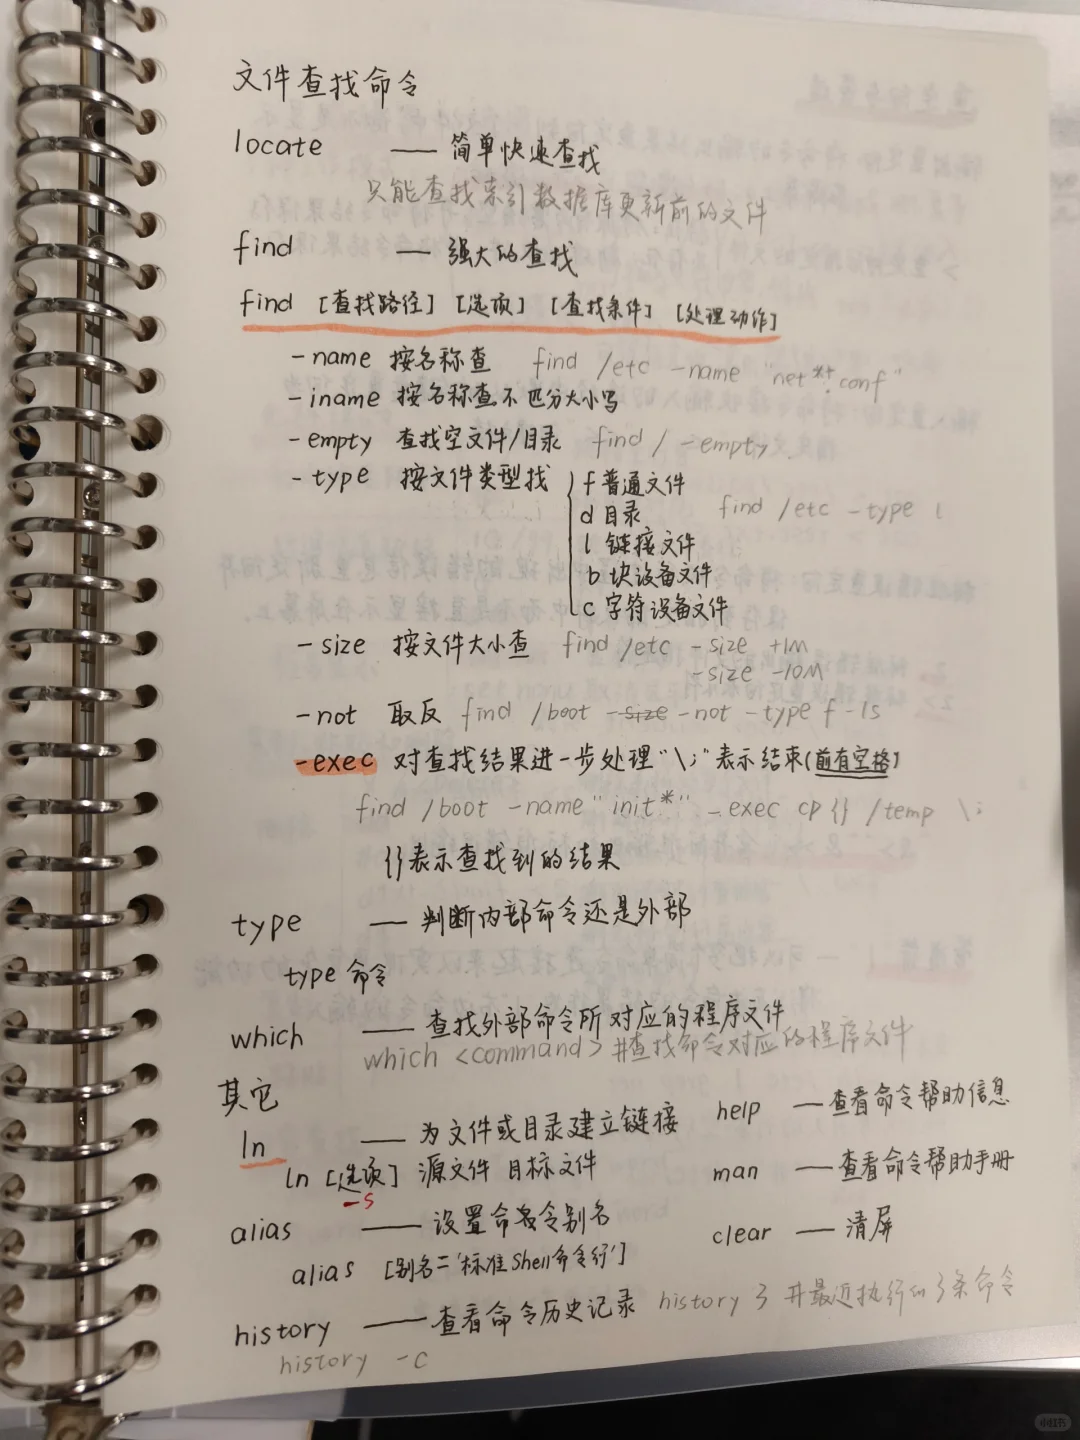 文件查找命令
locate —— 简单快速查找
只能查找索引数据库更新前的文件
find —— 强大的查找
find [查找路径] [选项] [查找条件] [处理动作]
-name 按名称查 find /etc -name "net*.conf"
-iname 按名称查不匹分大小写
-empty 查找空文件/目录 find / -empty
-type 按文件类型找 f 普通文件
d 目录 find /etc -type l
l 链接文件
b 块设备文件
c 字符设备文件
-size 按文件大小查 find /etc -size +1M
-size -10M
-not 取反 find /boot -size -not -type f -ls
-exec 对查找结果进一步处理"\;"表示结束(前有空格)
find /boot -name "init*" -exec cp {} /temp \;
{}表示查找到的结果
type —— 判断内部命令还是外部
type 命令
which —— 查找外部命令所对应的程序文件
which <command> #查找命令对应的程序文件
其它
ln —— 为文件或目录建立链接
ln [选项] 源文件 目标文件
-s
alias —— 设置命令别名
alias [别名='标准Shell命令行']
history —— 查看命令历史记录 history 3 #最近执行的3条命令
history -c
help —— 查看命令帮助信息
man —— 查看命令帮助手册
clear —— 清屏
小红书